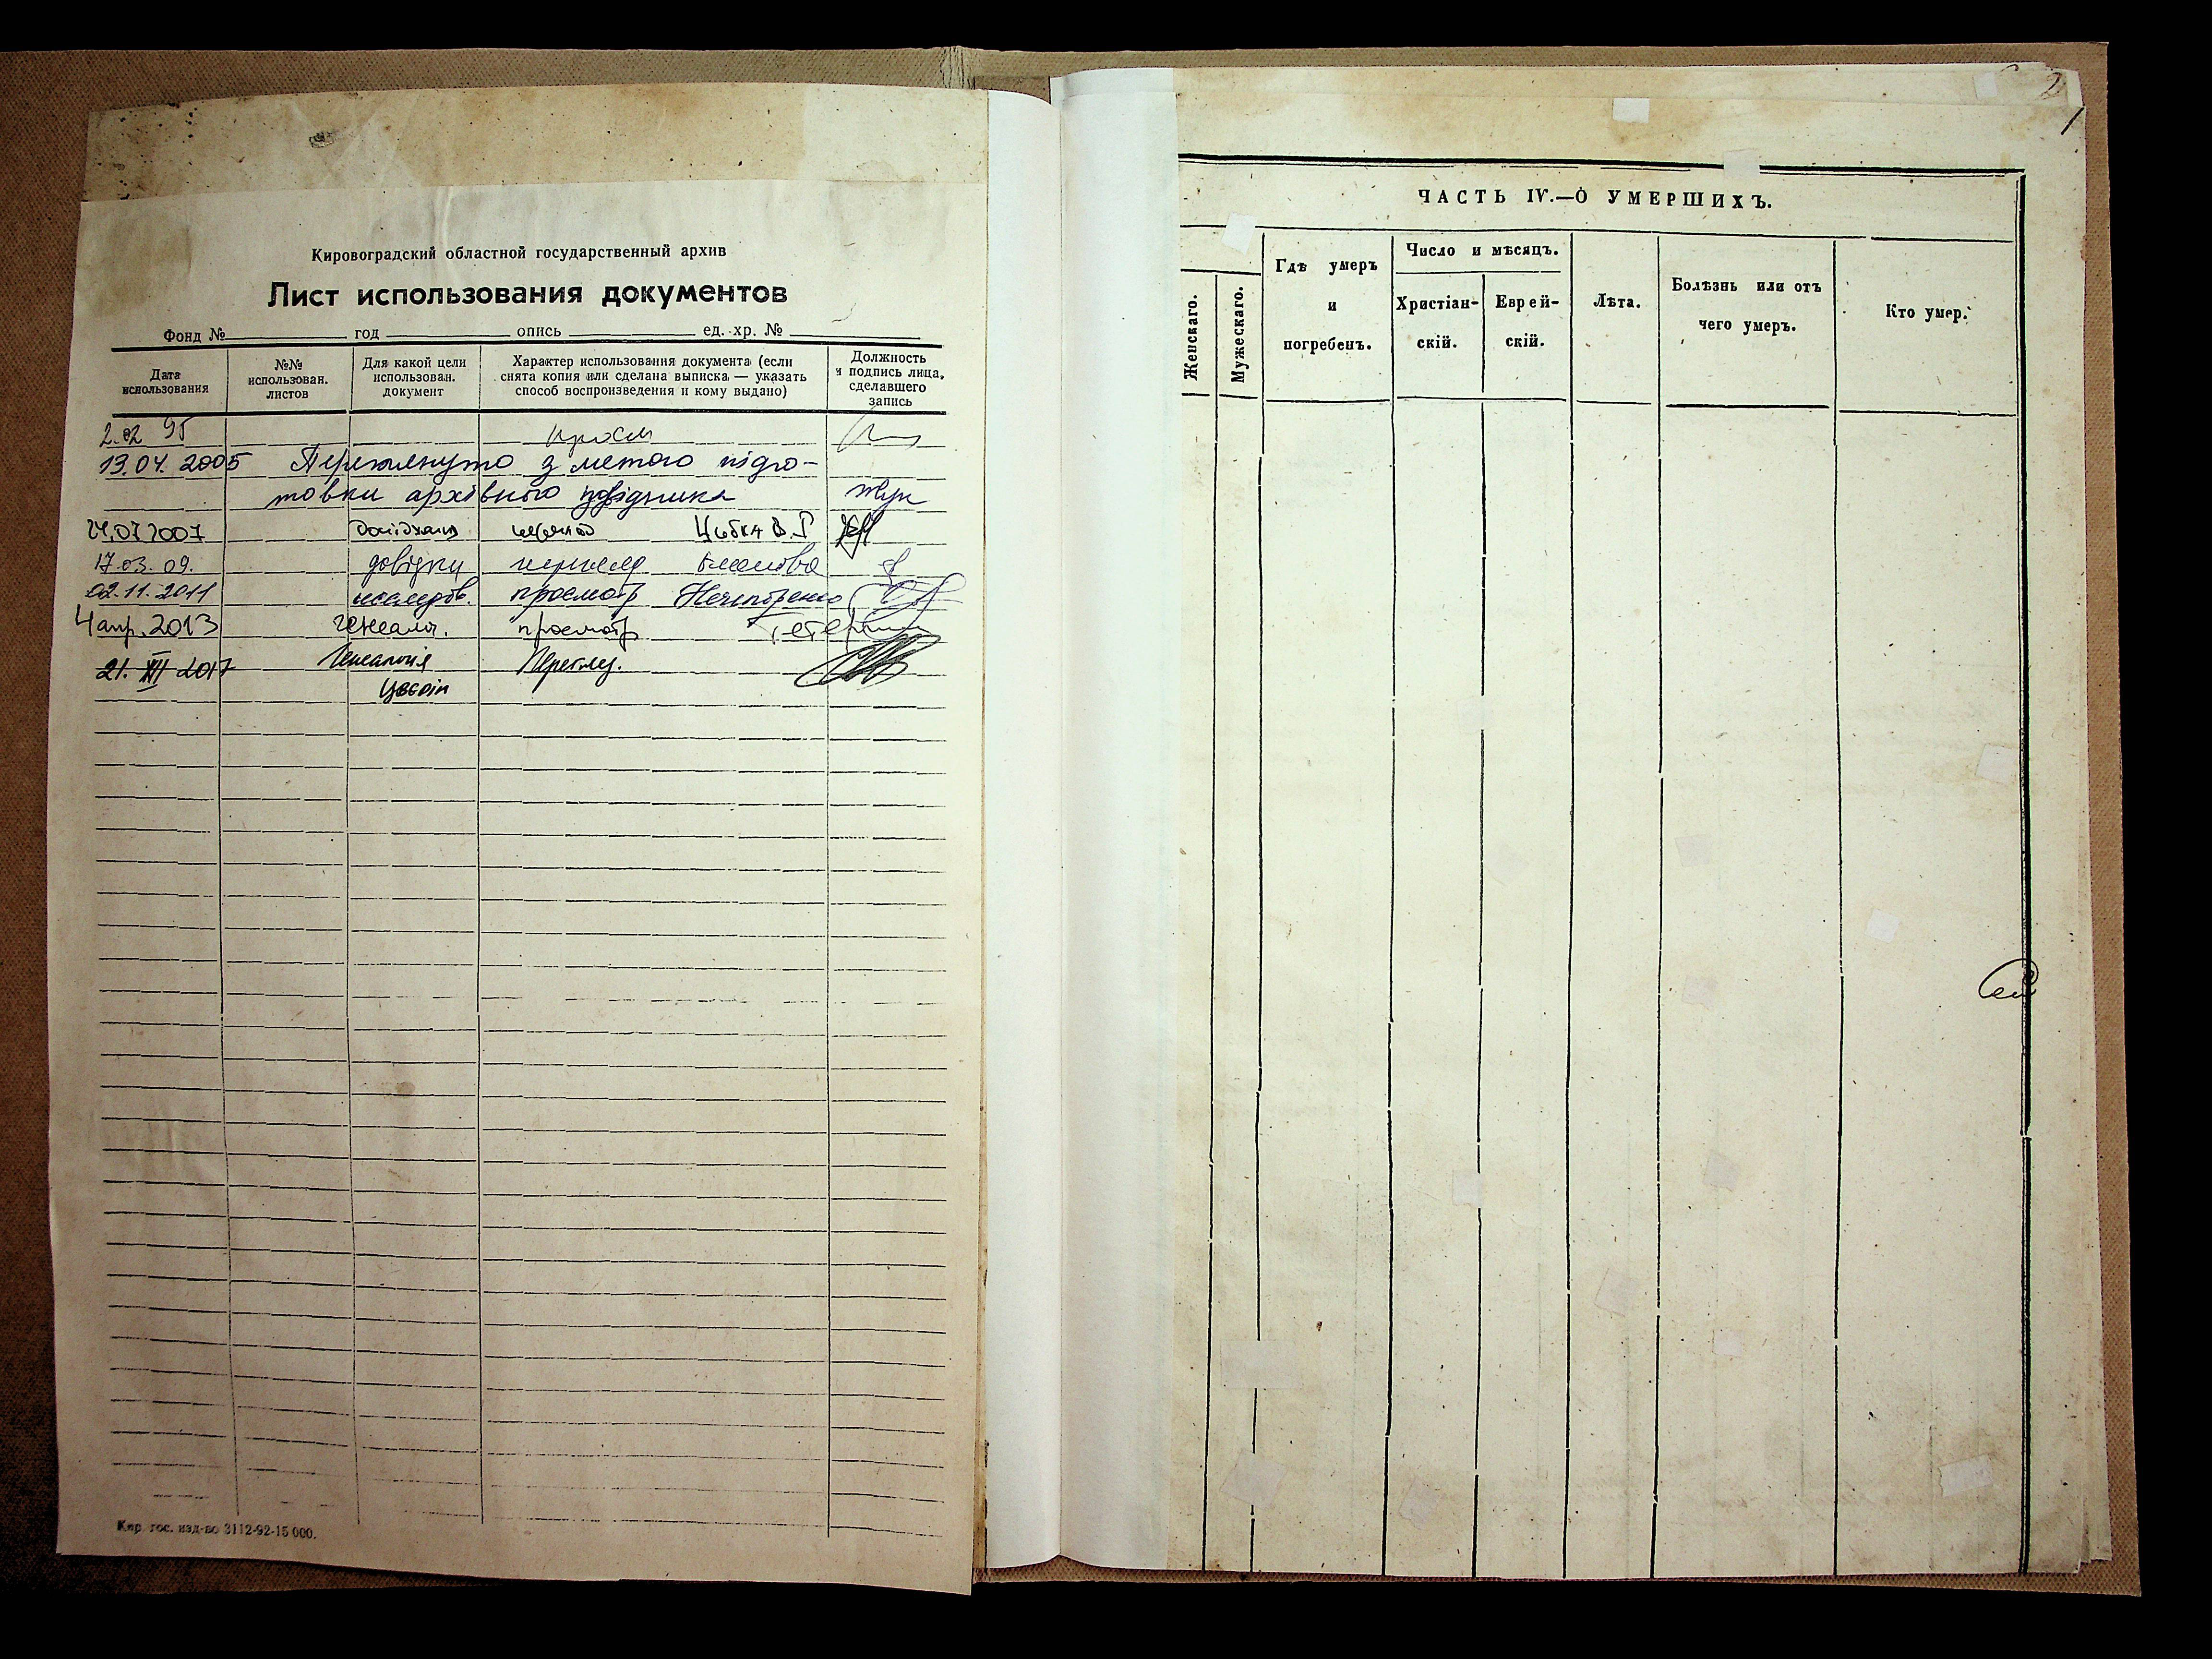 Кировоградский областной государственный архив
Лист использования документов
Фонд № год опись ед. хр. №
Дата использования
№№ использован. листов
Для какой цели использован. документ
Характер использования документа (если снята копия или сделана выписка — указать способ воспроизведения и кому выдано)
Должность и подпись лица, сделавшего запись
2.02 95
13.04.2005 Переглянуто з метою підго-
товки архівного довідника
24.07.2007 Цибка В.Г
17.03.09. довідки перегляд
02.11.2011 исследов. просмотр Нечипоренко
4 апр. 2013 генеал. просмотр
21.XII 2017 Генеалогія Перегляд.
Кир. гос. изд-во 3112-92-15 000.
2
1
ЧАСТЬ IV.—О УМЕРШИХЪ.
Женскаго.
Мужескаго.
Гдѣ умеръ и погребенъ.
Число и мѣсяцъ.
Христіан-
скій.
Еврей-
скій.
Лѣта.
Болѣзнь или отъ
чего умеръ.
Кто умер.